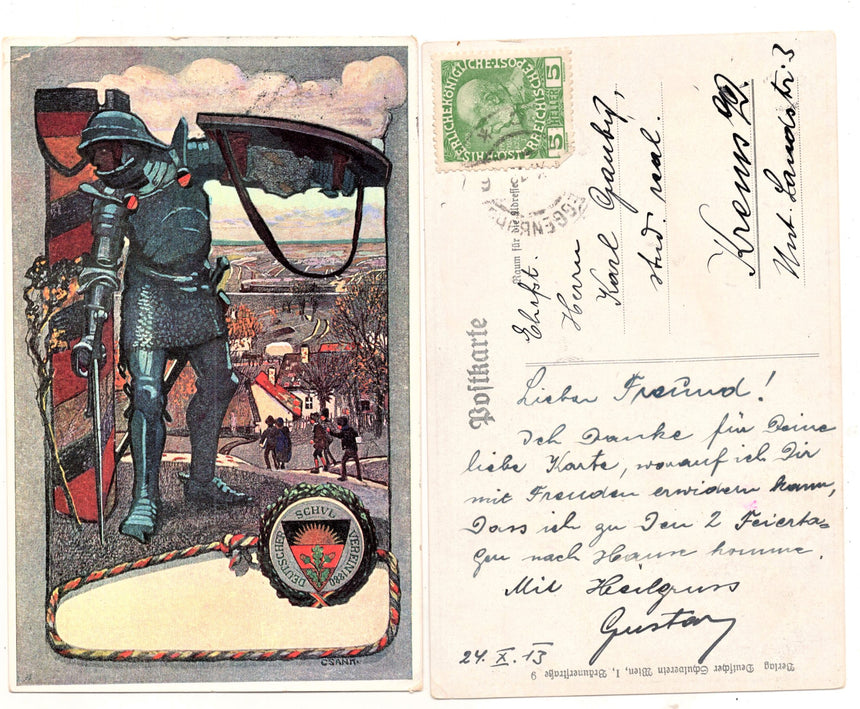 DEUTSCHER SCHVL VEREIN 1880
CSANK.
KAISERLICHE KÖNIGLICHE
ÖSTERREICHISCHE POST
5 HELLER 5
EGGENBURG
Raum für die Adresse
Postkarte
Ehrft.
Herrn
Karl
stud. real.
Krems a/D.
Unt. Landstr. 3
Lieber Freund!
Ich Danke für Deine
liebe Karte, worauf ich Dir
mit Freuden erwidern kann,
Dass ich zu Den 2 Feierta-
gen nach Hause komme.
Mit Heilgruss
Gustav
24. X. 13
Verlag Deutscher Schulverein Wien, I, Bräunerstraße 9